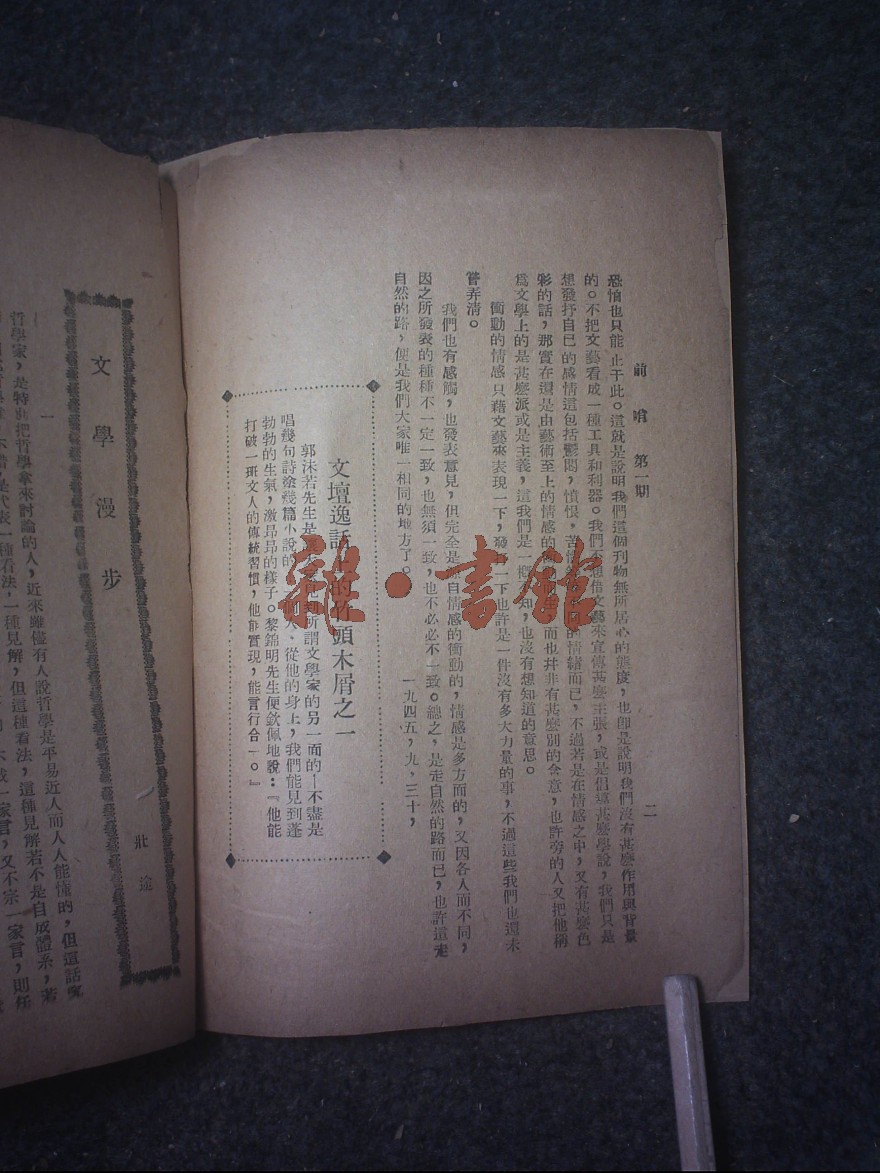 前哨 第一期
二
恐怕也只能止于此。這就是說明我們這個刊物無所居心的態度，也卽是說明我們沒有甚麼作用與背景
的。不把文藝看成一種工具和利器。我們不想借文藝來宣傳甚麼主張，或是倡導甚麼學說，我們只是
想發抒自已的感情這包括鬱悶，憤恨，苦惱 的情緒而已，不過若是在情感之中，又有甚麼色
彩的話，那實在還是由藝術至上的情感的 生 而也幷非有甚麼別的含意，也許旁的人又把他稱
爲文學上的是甚麼派或是主義，這我們是一槪 知，也沒有想知道的意思。
衝動的情感只藉文藝來表現一下，發 一下也許是一件沒有多大力量的事，不過這些我們也還未
嘗弄清。
我們也有感觸，也發表意見，但完全是 自情感的衝動的，情感是多方面的，又因各人而不同，
因之所發表的種種不一定一致，也無須一致，也不必必不一致。總之，是走自然的路而已，也許這走
自然的路，便是我們大家唯一相同的地方了。
一九四五，九，三十，
文壇逸話上的竹頭木屑之一
郭沫若先生是 到所謂文學家的另一面的—不盡是
唱幾句詩塗幾篇小說的一個人，從他的身上，我們能見到蓬
勃勃的生氣，激昂昂的樣子。黎錦明先生便欽佩地說：『他能
打破一班文人的傳統習慣，他能實現，能言行合一。』
文學漫步
壯途
一
哲學家，是特與把哲學拿來討論的人，近來雖儘有人說哲學是平易近人而人人能懂的，但這話
代表一種看法，一種見解，但這種看法，這種見解若不是自成體系，若
一家言，又不宗一家言，則任
雜·書館